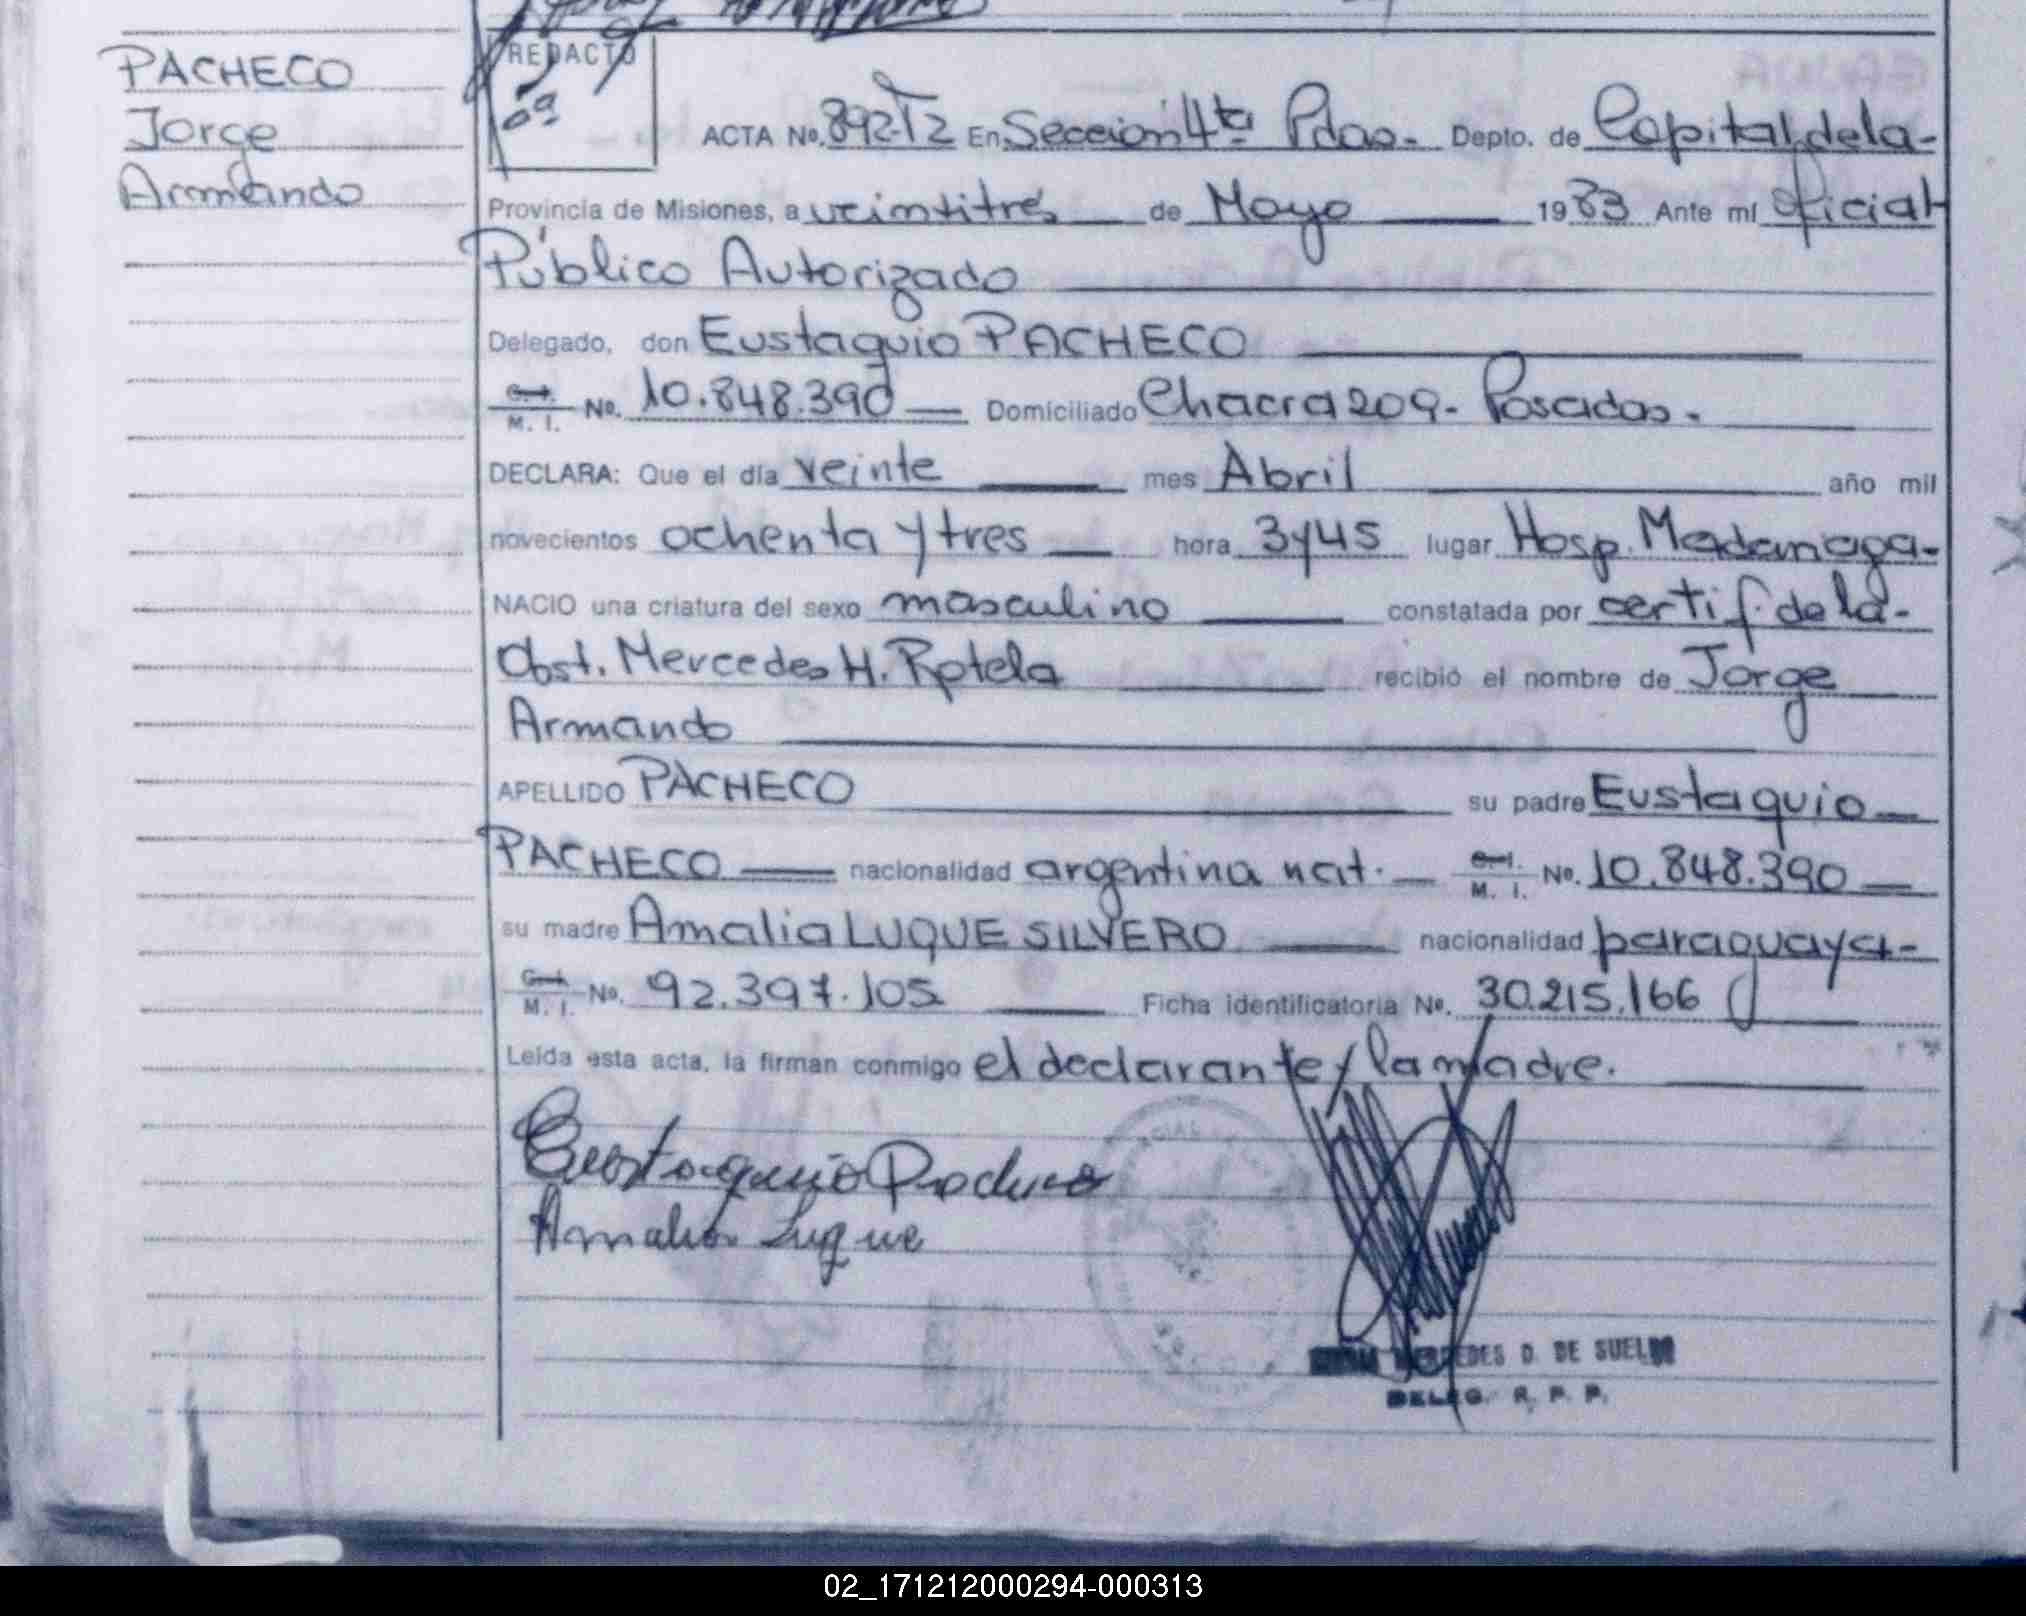 PACHECO
Jorge
Armando
REDACTO
ACTA No. 892-T2 En Seccion 4ta Pdas.- Depto. de Capital, de la-
Provincia de Misiones, a veintitrés de Mayo 1983 Ante mí Oficial
Público Autorizado
Delegado, don Eustaquio PACHECO
C. I.
M. I. No. 10.848.390 Domiciliado Chacra 209.- Posadas.
DECLARA: Que el día veinte mes Abril año mil
novecientos ochenta y tres hora 3y45 lugar Hosp. Madariaga-
NACIO una criatura del sexo masculino constatada por certif. de la-
Obst. Mercedes H. Rotela recibió el nombre de Jorge
Armando
APELLIDO PACHECO su padre Eustaquio
PACHECO nacionalidad argentina nat. C. I.
M. I. No. 10.848.390
su madre Amalia LUQUE SILVERO nacionalidad paraguaya-
C. I.
M. I. No. 92.397.105 Ficha identificatoria No. 30.215.166
Leída esta acta, la firman conmigo el declarante y la madre.
Eustaquio Pacheco
Amalia Luque
D. DE SUELDO
DELEG. R. P. P.
02_171212000294-000313